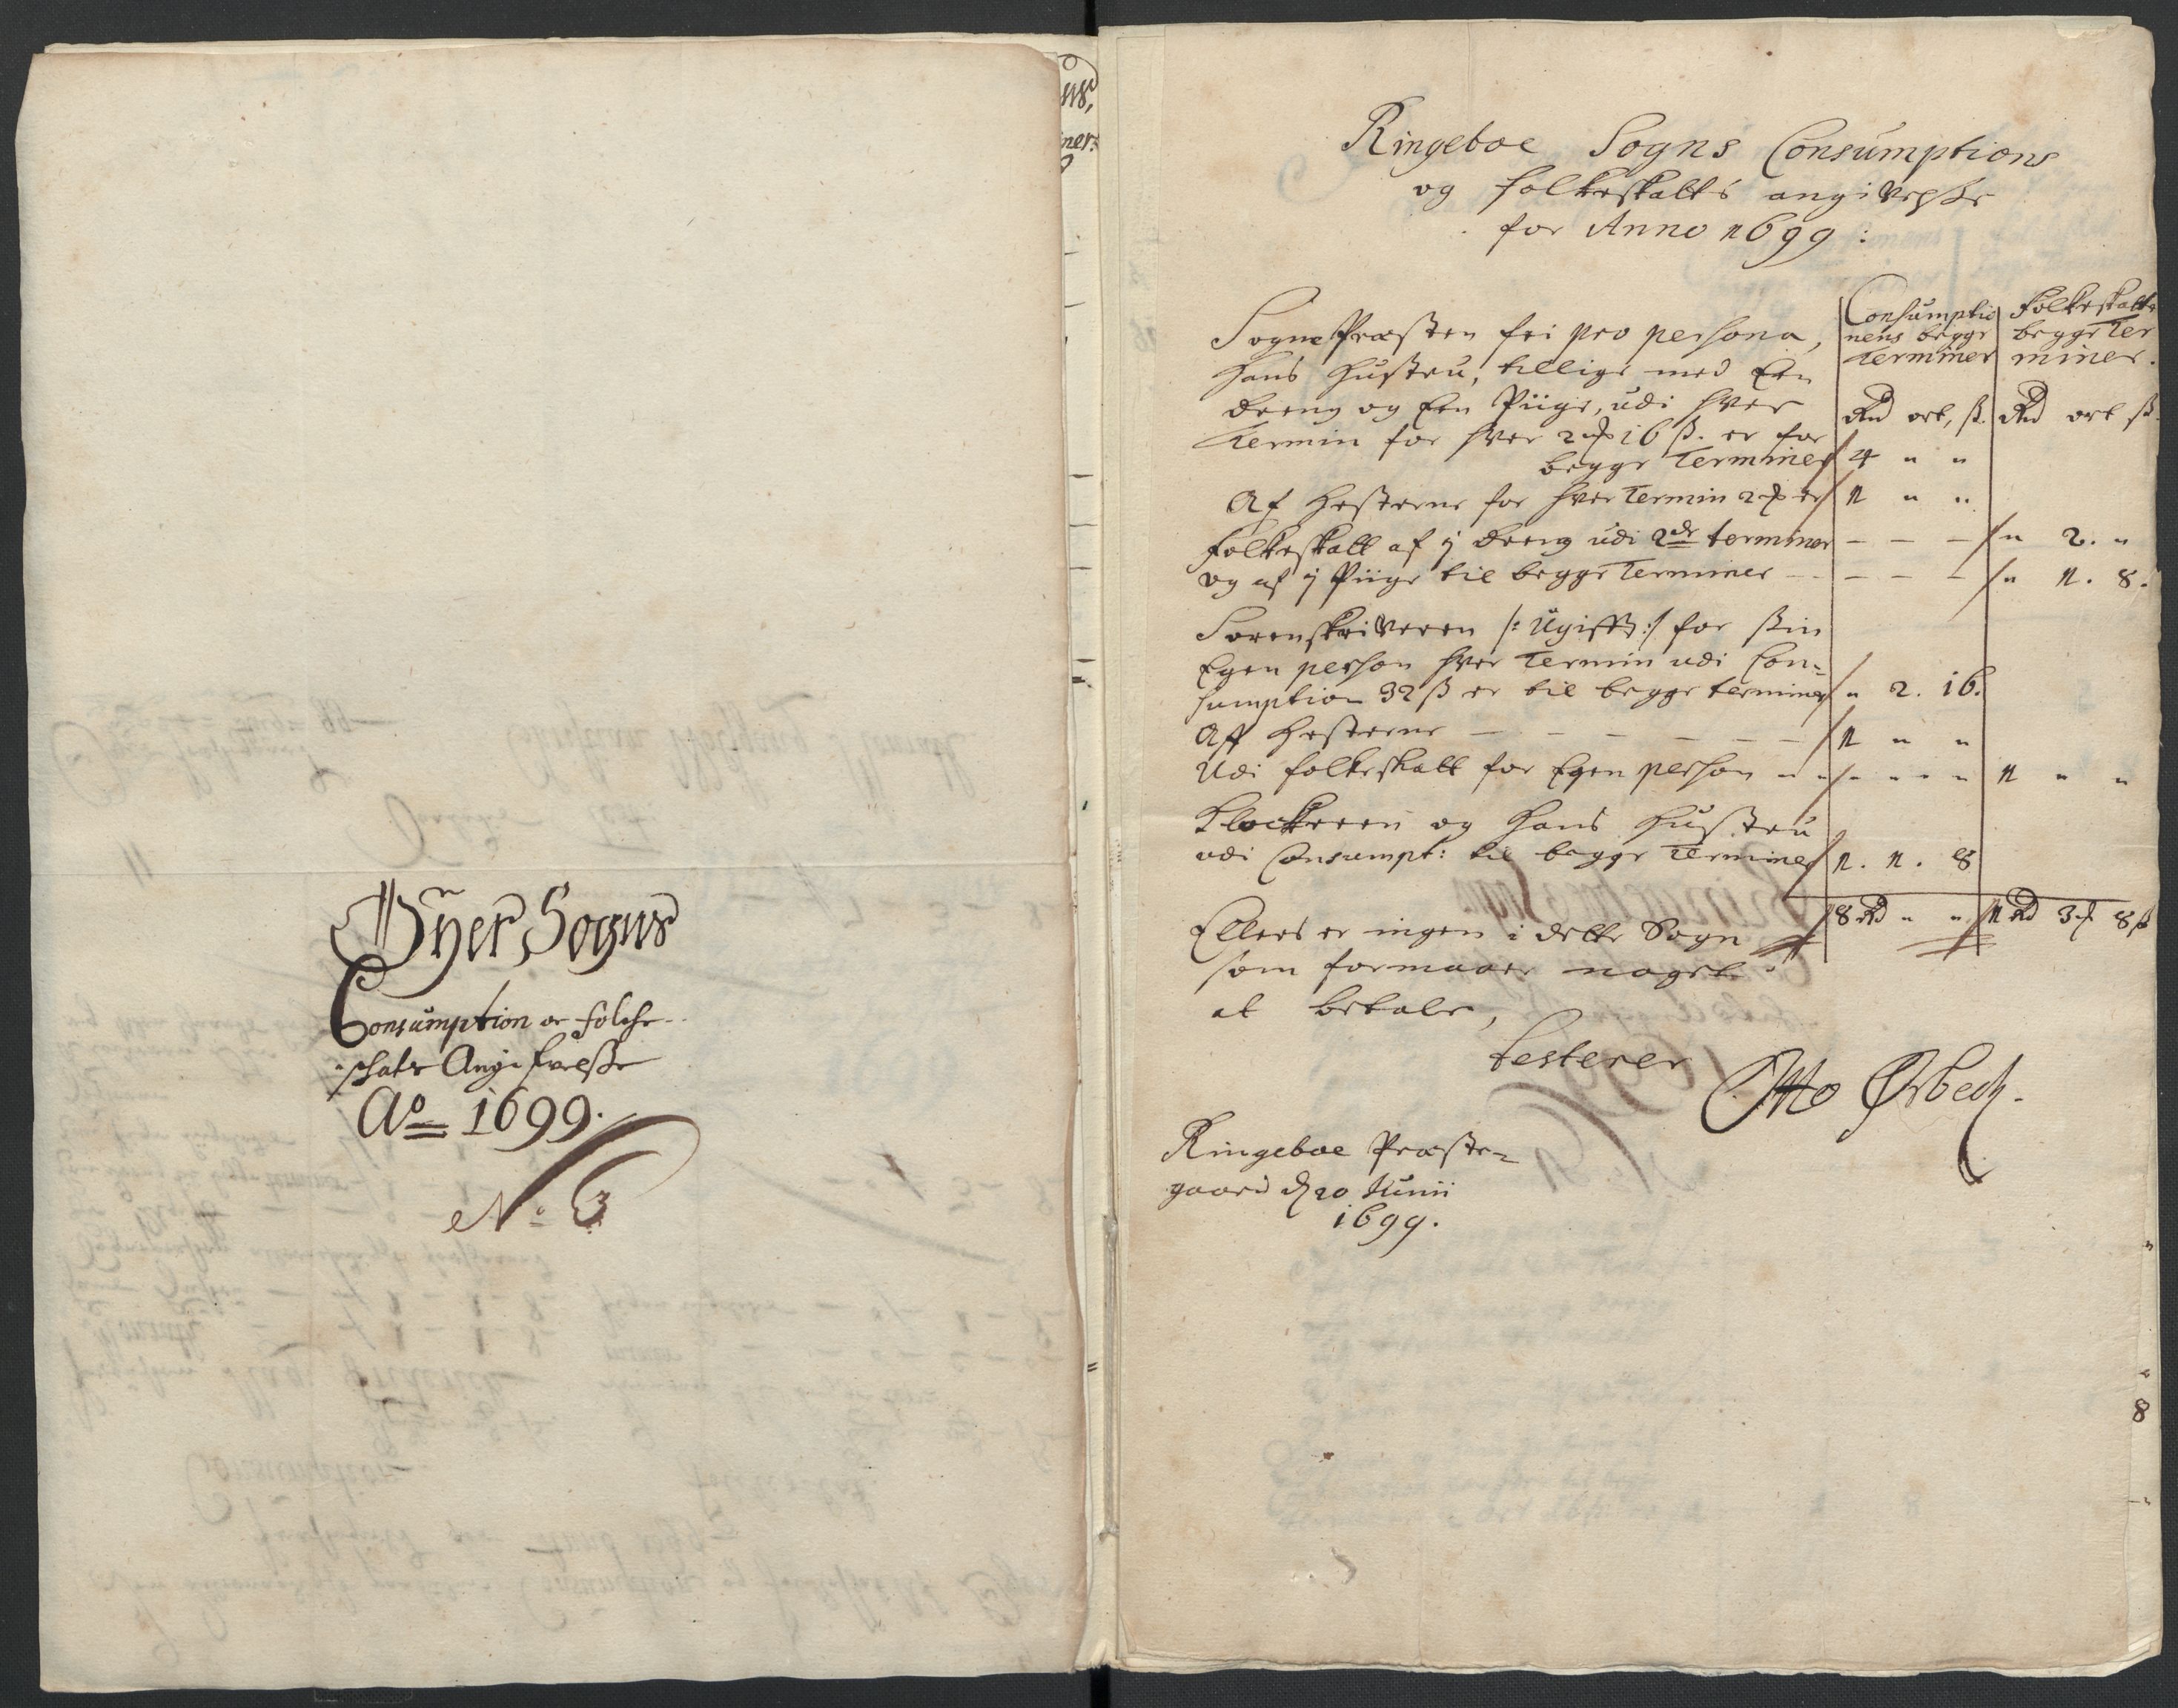 Øyer Sogns
Consumption og folche-
schats Angifvelsse
Ao 1699.
No 3
Ringeboe Sogns Consumptions
og folkeskatts angivelsse
for Anno 1699:
Consumptio
nens begge
Terminer
Folkeskatts
begge Ter
miner.
Rd ort, ß. Rd ort ß.
SognePræsten fri pro persona,
hans hustru, tillige med Een
dreng og Een Piige, udi hver
Termin for hver 2 ort 16 ß. er for
begge Terminer 4 " "
Af hesterne for hver Termin 2 ort er 1 " "
folkeskatt af j dreng udi 2de terminer - - - " 2. "
og af j Piige til begge Terminer - - - " 1. 8.
Sorenskriveren /: Ugifft :/ for sin
Egen person hver Termin udi Con-
sumption 32 ß er til begge terminer " 2. 16.
Aff hesterne - - - - - 1 " "
Udi folkeskatt for Egen person " " " " " 1 " "
Klockeren og hans hustru
udi Consumpt: til begge Terminer 1. 1. 8
8 Rd " " 1 Rd 3 ort 8 ß
Ellers er ingen i dette Sogn
som formaaer noget
at betale,
testerer
Otto Ørbech.
Ringeboe Præste-
gaard d 20 Junii
1699.